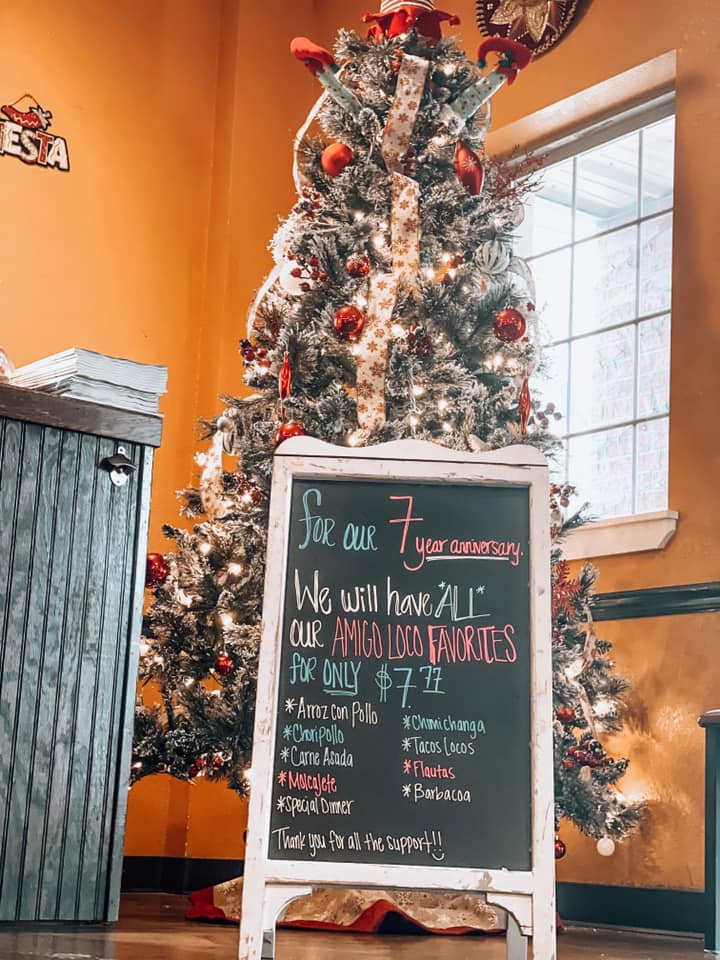 FIESTA
For our 7 year anniversary.
We will have *ALL*
our AMIGO LOCO FAVORITES
for ONLY $7.77
*Arroz con Pollo
*Choripollo
*Carne Asada
*Molcajete
*Special Dinner
*Chimichanga
*Tacos Locos
*Flautas
*Barbacoa
Thank you for all the support!!